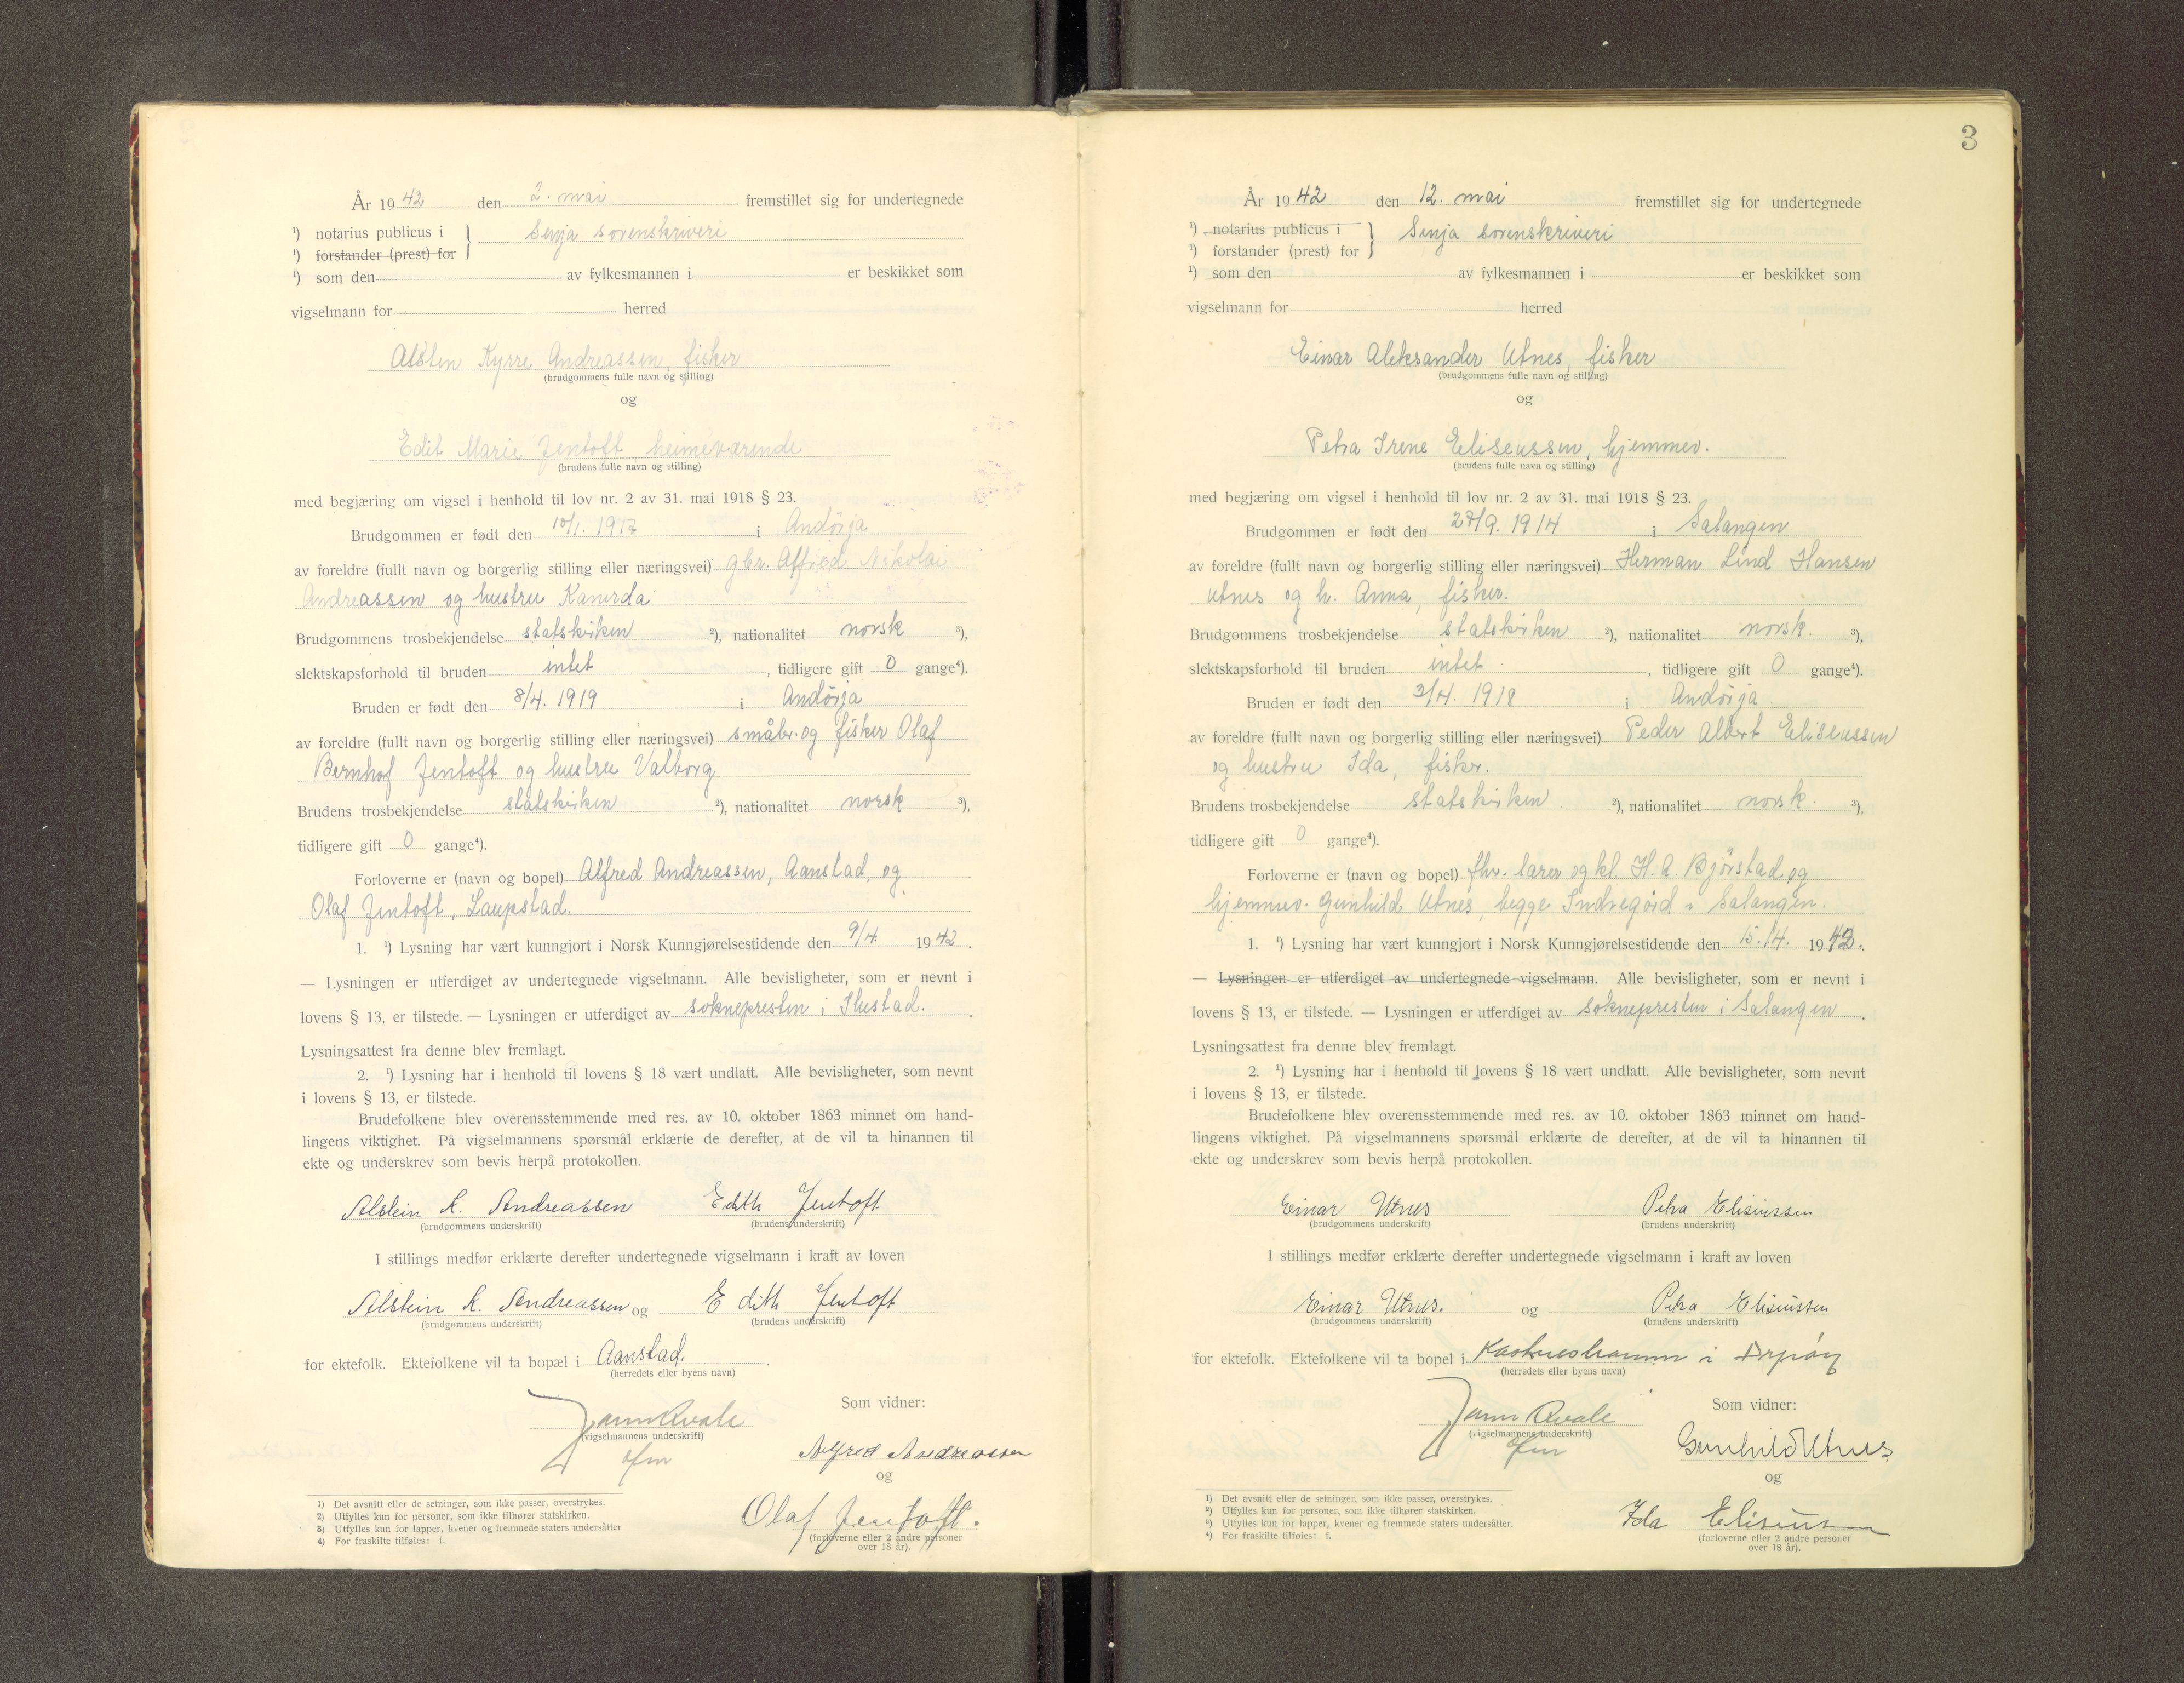 År 1942 den 2. mai fremstillet sig for undertegnede
¹) notarius publicus i } Senja sorenskriveri
¹) forstander (prest) for
¹) som den av fylkesmannen i er beskikket som
vigselmann for herred
Kyrre Andreassen, fisker
(brudgommens fulle navn og stilling)
og
Edit Marie Jentoft, heimeværende
(brudens fulle navn og stilling)
med begjæring om vigsel i henhold til lov nr. 2 av 31. mai 1918 § 23.
Brudgommen er født den i Andörja
av foreldre (fullt navn og borgerlig stilling eller næringsvei) gbr. Alfred Nikolai
Andreassen og hustru
Brudgommens trosbekjendelse statskirken ²), nationalitet norsk ³),
slektskapsforhold til bruden intet , tidligere gift 0 gange⁴).
Bruden er født den 8/4. 1919 i Andörja
av foreldre (fullt navn og borgerlig stilling eller næringsvei) småbr. og fisker Olaf
Bernhof Jentoft og hustru Valborg.
Brudens trosbekjendelse statskirken ²), nationalitet norsk ³),
tidligere gift 0 gange⁴).
Forloverne er (navn og bopel) Alfred Andreassen, Aanstad, og
Olaf Jentoft, Laupstad.
1. ¹) Lysning har vært kunngjort i Norsk Kunngjørelsestidende den 9/4 1942.
— Lysningen er utferdiget av undertegnede vigselmann. Alle bevisligheter, som er nevnt i
lovens § 13, er tilstede. — Lysningen er utferdiget av soknepresten i
Lysningsattest fra denne blev fremlagt.
2. ¹) Lysning har i henhold til lovens § 18 vært undlatt. Alle bevisligheter, som nevnt
i lovens § 13, er tilstede.
Brudefolkene blev overensstemmende med res. av 10. oktober 1863 minnet om hand-
lingens viktighet. På vigselmannens spørsmål erklærte de derefter, at de vil ta hinannen til
ekte og underskrev som bevis herpå protokollen.
Alstein K. Andreassen Edith Jentoft
(brudgommens underskrift) (brudens underskrift)
I stillings medfør erklærte derefter undertegnede vigselmann i kraft av loven
Alstein K. Andreassen og Edith Jentoft
(brudgommens underskrift) (brudens underskrift)
for ektefolk. Ektefolkene vil ta bopæl i Aanstad.
(herredets eller byens navn)
Som vidner:
(vigselmannens underskrift)
Alfred Andreassen
og
Olaf Jentoft.
(forloverne eller 2 andre personer
over 18 år).
1) Det avsnitt eller de setninger, som ikke passer, overstrykes.
2) Utfylles kun for personer, som ikke tilhører statskirken.
3) Utfylles kun for lapper, kvener og fremmede staters undersåtter
4) For fraskilte tilføies: f.
3
År 1942 den 12. mai fremstillet sig for undertegnede
¹) notarius publicus i } Senja sorenskriveri
¹) forstander (prest) for
¹) som den av fylkesmannen i er beskikket som
vigselmann for herred
Einar Aleksander Utnes, fisker
(brudgommens fulle navn og stilling)
og
Petra Irene Eliseussen, hjemmev.
(brudens fulle navn og stilling)
med begjæring om vigsel i henhold til lov nr. 2 av 31. mai 1918 § 23.
Brudgommen er født den 27/9. 1914 i Salangen
av foreldre (fullt navn og borgerlig stilling eller næringsvei) Herman Lind Hansen
Utnes og h. Anna, fisker.
Brudgommens trosbekjendelse statskirken ²), nationalitet norsk. ³),
slektskapsforhold til bruden intet. , tidligere gift 0 gange⁴).
Bruden er født den i Andörja
av foreldre (fullt navn og borgerlig stilling eller næringsvei) Peder Albert Eliseussen
og hustru Ida, fisker.
Brudens trosbekjendelse statskirken ²), nationalitet norsk. ³),
tidligere gift 0 gange⁴).
Forloverne er (navn og bopel) fhv. lærer og kl. H. A. Björstad og
hjemmev. Gunhild Utnes, begge Indregård i Salangen.
1. ¹) Lysning har vært kunngjort i Norsk Kunngjørelsestidende den 15./4. 1942.
— Lysningen er utferdiget av undertegnede vigselmann. Alle bevisligheter, som er nevnt i
lovens § 13, er tilstede. — Lysningen er utferdiget av soknepresten i Salangen.
Lysningsattest fra denne blev fremlagt.
2. ¹) Lysning har i henhold til lovens § 18 vært undlatt. Alle bevisligheter, som nevnt
i lovens § 13, er tilstede.
Brudefolkene blev overensstemmende med res. av 10. oktober 1863 minnet om hand-
lingens viktighet. På vigselmannens spørsmål erklærte de derefter, at de vil ta hinannen til
ekte og underskrev som bevis herpå protokollen.
Einar Utnes Petra Eliseussen
(brudgommens underskrift) (brudens underskrift)
I stillings medfør erklærte derefter undertegnede vigselmann i kraft av loven
Einar Utnes. og Petra Eliseussen
(brudgommens underskrift) (brudens underskrift)
for ektefolk. Ektefolkene vil ta bopel i i
(herredets eller byens navn)
Som vidner:
(vigselmannens underskrift)
Gunhild Utnes
og
Ida Eliseussen
(forloverne eller 2 andre personer
over 18 år).
¹) Det avsnitt eller de setninger, som ikke passer, overstrykes.
²) Utfylles kun for personer, som ikke tilhører statskirken.
³) Utfylles kun for lapper, kvener og fremmede staters undersåtter.
⁴) For fraskilte tilføies: f.